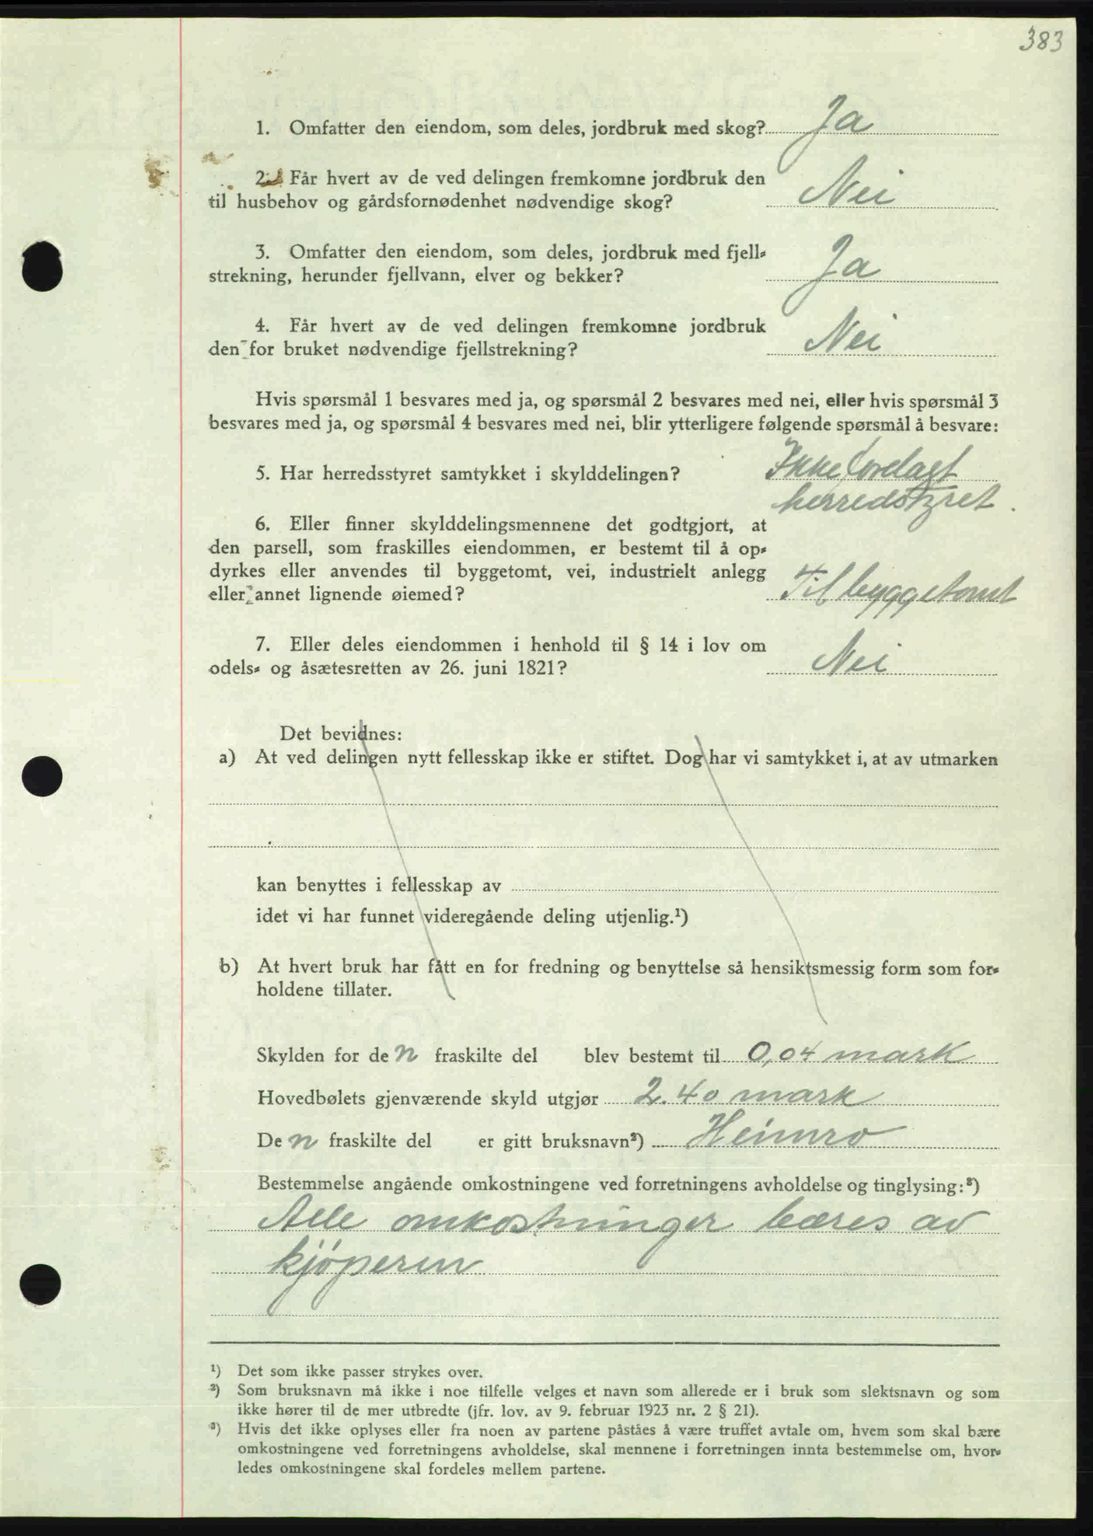 383
1. Omfatter den eiendom, som deles, jordbruk med skog? Ja
2. Får hvert av de ved delingen fremkomne jordbruk den
til husbehov og gårdsfornødenhet nødvendige skog? Nei
3. Omfatter den eiendom, som deles, jordbruk med fjell-
strekning, herunder fjellvann, elver og bekker? Ja
4. Får hvert av de ved delingen fremkomne jordbruk
den for bruket nødvendige fjellstrekning? Nei
Hvis spørsmål 1 besvares med ja, og spørsmål 2 besvares med nei, eller hvis spørsmål 3
besvares med ja, og spørsmål 4 besvares med nei, blir ytterligere følgende spørsmål å besvare:
5. Har herredsstyret samtykket i skylddelingen? Ikke forelagt
herredstyret.
6. Eller finner skylddelingsmennene det godtgjort, at
den parsell, som fraskilles eiendommen, er bestemt til å op-
dyrkes eller anvendes til byggetomt, vei, industrielt anlegg
eller annet lignende øiemed? Til byggetomt
7. Eller deles eiendommen i henhold til § 14 i lov om
odels- og åsætesretten av 26. juni 1821? Nei
Det bevidnes:
a) At ved delingen nytt fellesskap ikke er stiftet. Dog har vi samtykket i, at av utmarken
kan benyttes i fellesskap av
idet vi har funnet videregående deling utjenlig.¹)
b) At hvert bruk har fått en for fredning og benyttelse så hensiktsmessig form som for-
holdene tillater.
Skylden for den fraskilte del blev bestemt til 0,04 mark
Hovedbølets gjenværende skyld utgjør 2.40 mark
Den fraskilte del er gitt bruksnavn²) Heimro
Bestemmelse angående omkostningene ved forretningens avholdelse og tinglysing:³)
Alle omkostninger bæres av
kjøperen
¹) Det som ikke passer strykes over.
²) Som bruksnavn må ikke i noe tilfelle velges et navn som allerede er i bruk som slektsnavn og som
ikke hører til de mer utbredte (jfr. lov. av 9. februar 1923 nr. 2 § 21).
³) Hvis det ikke oplyses eller fra noen av partene påståes å være truffet avtale om, hvem som skal bære
omkostningene ved forretningens avholdelse, skal mennene i forretningen innta bestemmelse om, hvor-
ledes omkostningene skal fordeles mellem partene.